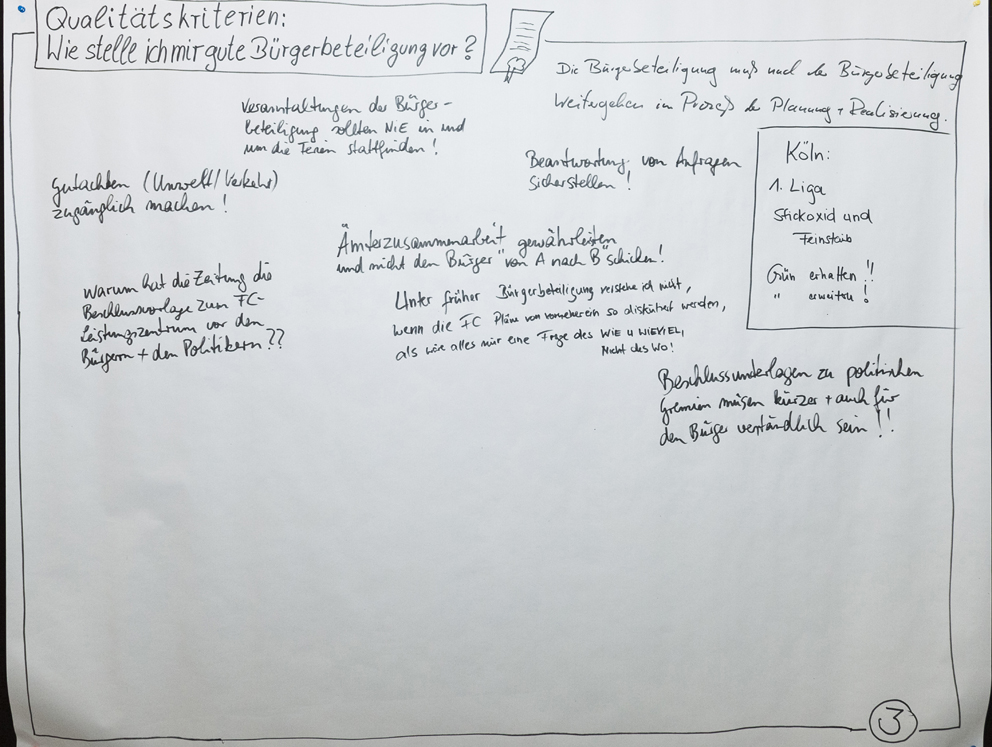 Qualitätskriterien:
Wie stelle ich mir gute Bürgerbeteiligung vor?
Die Bürgerbeteiligung muß nach der Bürgerbeteiligung
weitergehen im Prozeß der Planung + Realisierung.
Veranstaltungen der Bürger-
beteiligung sollten NiE in und
um die Ferien stattfinden!
Gutachten (Umwelt/Verkehr)
zugänglich machen!
Beantwortung von Anfragen
sicherstellen!
Köln:
1. Liga
Stickoxid und
Feinstaub
Grün erhalten!!
" erweitern!
Ämterzusammenarbeit gewährleisten
und nicht den Bürger "von A nach B" schicken!
Warum hat die Zeitung die
Beschlussvorlage zum FC-
Leistungszentrum vor den
Bürgern + den Politikern??
Unter früher Bürgerbeteiligung verstehe ich nicht,
wenn die FC Pläne von vorneherein so diskutiert werden,
als wäre alles nur eine Frage des WIE u WIEVIEL,
Nicht des Wo!
Beschlussunterlagen zu politischen
Gremien müssen kürzer + auch für
den Bürger verständlich sein!!
3